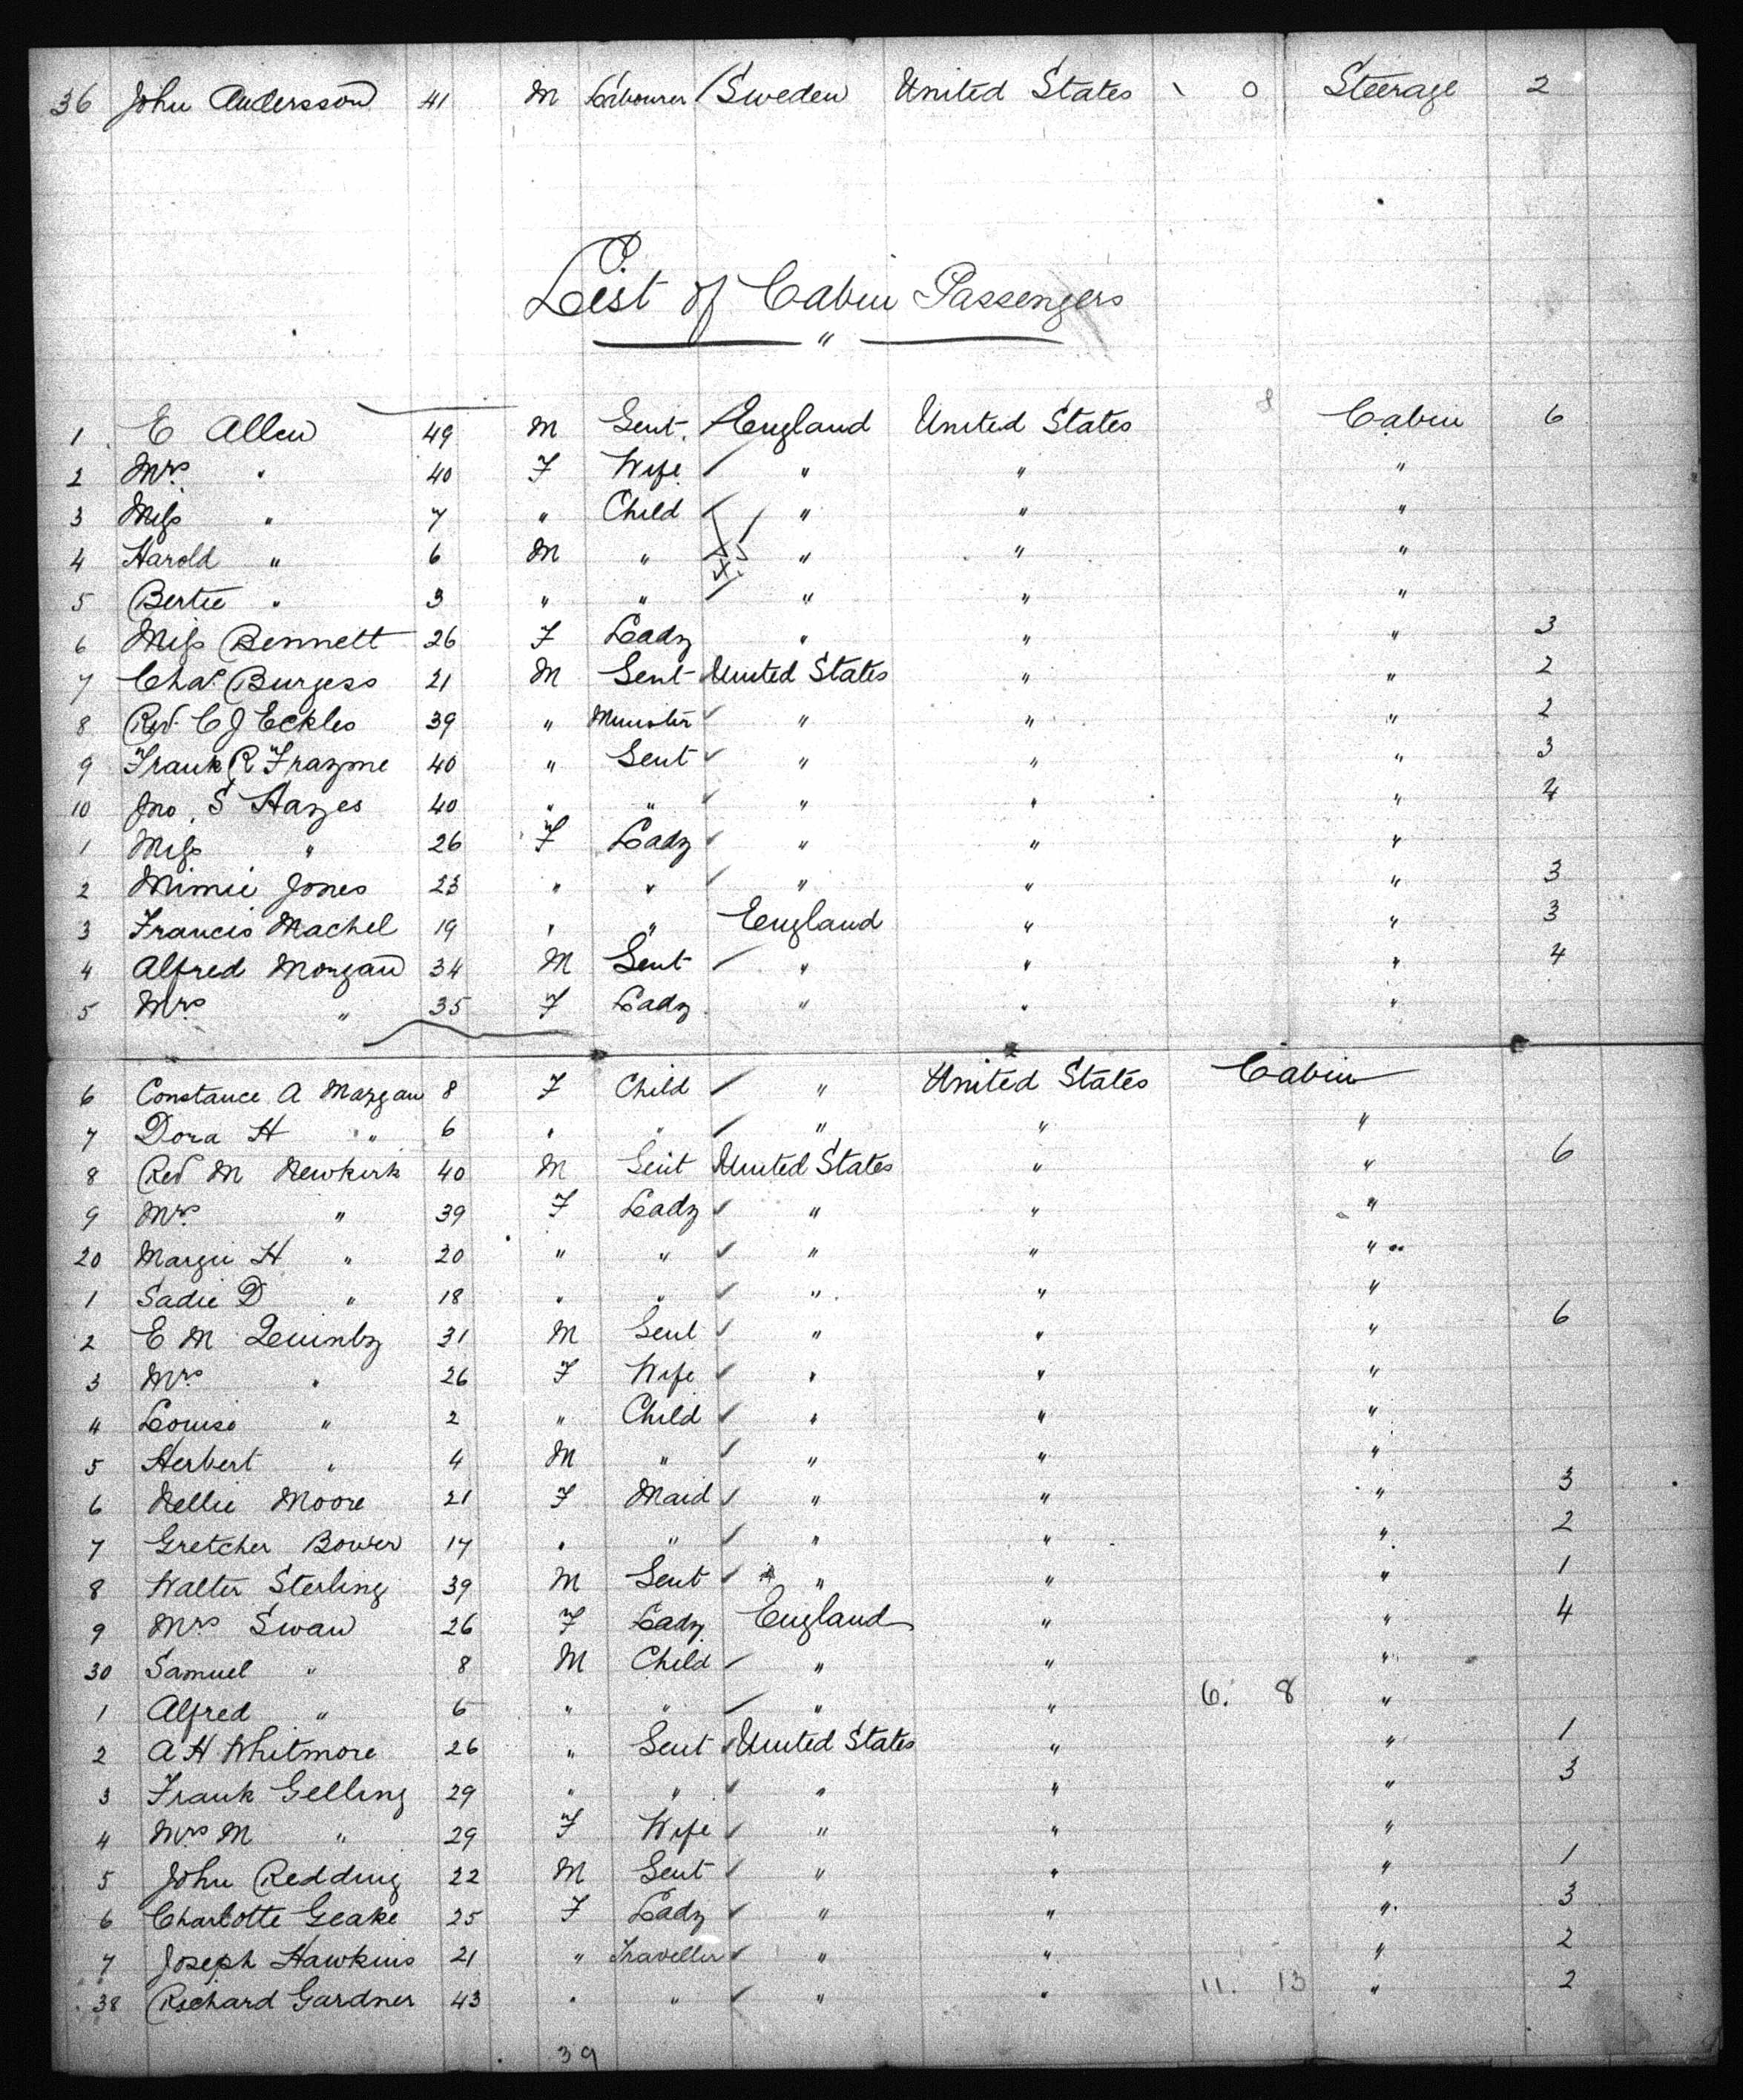 36 John Andersson 41 M Labourer Sweden United States 0 Steerage 2
List of Cabin Passengers
"
1 E Allen 49 M Gent. England United States 8 Cabin 6
2 Mrs " 40 F Wife " " "
3 Miss " 7 " Child " " "
4 Harold " 6 M " " " "
5 Bertie " 3 " " " " "
6 Miss Bennett 26 F Lady " " " 3
7 Chas. Burgess 21 M Gent United States " " 2
8 Revd. C J Eckles 39 " Minister " " " 2
9 Frank R Frazme 40 " Gent " " " 3
10 Jno. S Hayes 40 " " " " " 4
1 Miss " 26 F Lady " " "
2 Mimie Jones 23 " " " " " 3
3 Francis Machel 19 " " England " " 3
4 Alfred Morgan 34 M Gent " " " 4
5 Mrs " 35 F Lady " " "
6 Constance A Morgan 8 F Child " United States Cabin
7 Dora H " 6 " " " " "
8 Revd M Newkirk 40 M Gent United States " " 6
9 Mrs " 39 F Lady " " "
20 Margie H " 20 " " " " "
1 Sadie D " 18 " " " " "
2 E M Quimby 31 M Gent " " " 6
3 Mrs " 26 F Wife " " "
4 Louise " 2 " Child " " "
5 Herbert " 4 M " " " "
6 Nellie Moore 21 F Maid " " " 3
7 Gretcher Bower 17 " " " " " 2
8 Walter Sterling 39 M Gent " " " 1
9 Mrs Swan 26 F Lady England " " 4
30 Samuel " 8 M Child " " "
1 Alfred " 6 " " " " 6. 8 "
2 A H Whitmore 26 " Gent United States " " 1
3 Frank Gelling 29 " " " " " 3
4 Mrs M " 29 F Wife " " "
5 John Redding 22 M Gent " " " 1
6 Charlotte Geake 25 F Lady " " " 3
7 Joseph Hawkins 21 " Traveller " " " 2
38 Richard Gardner 43 " " " " 11. 13 " 2
39